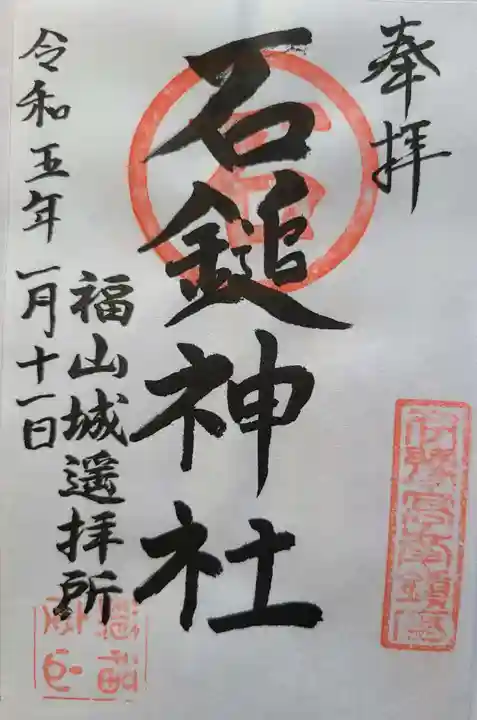 奉拝
石鎚神社
福山城遥拝所
令和五年一月十一日